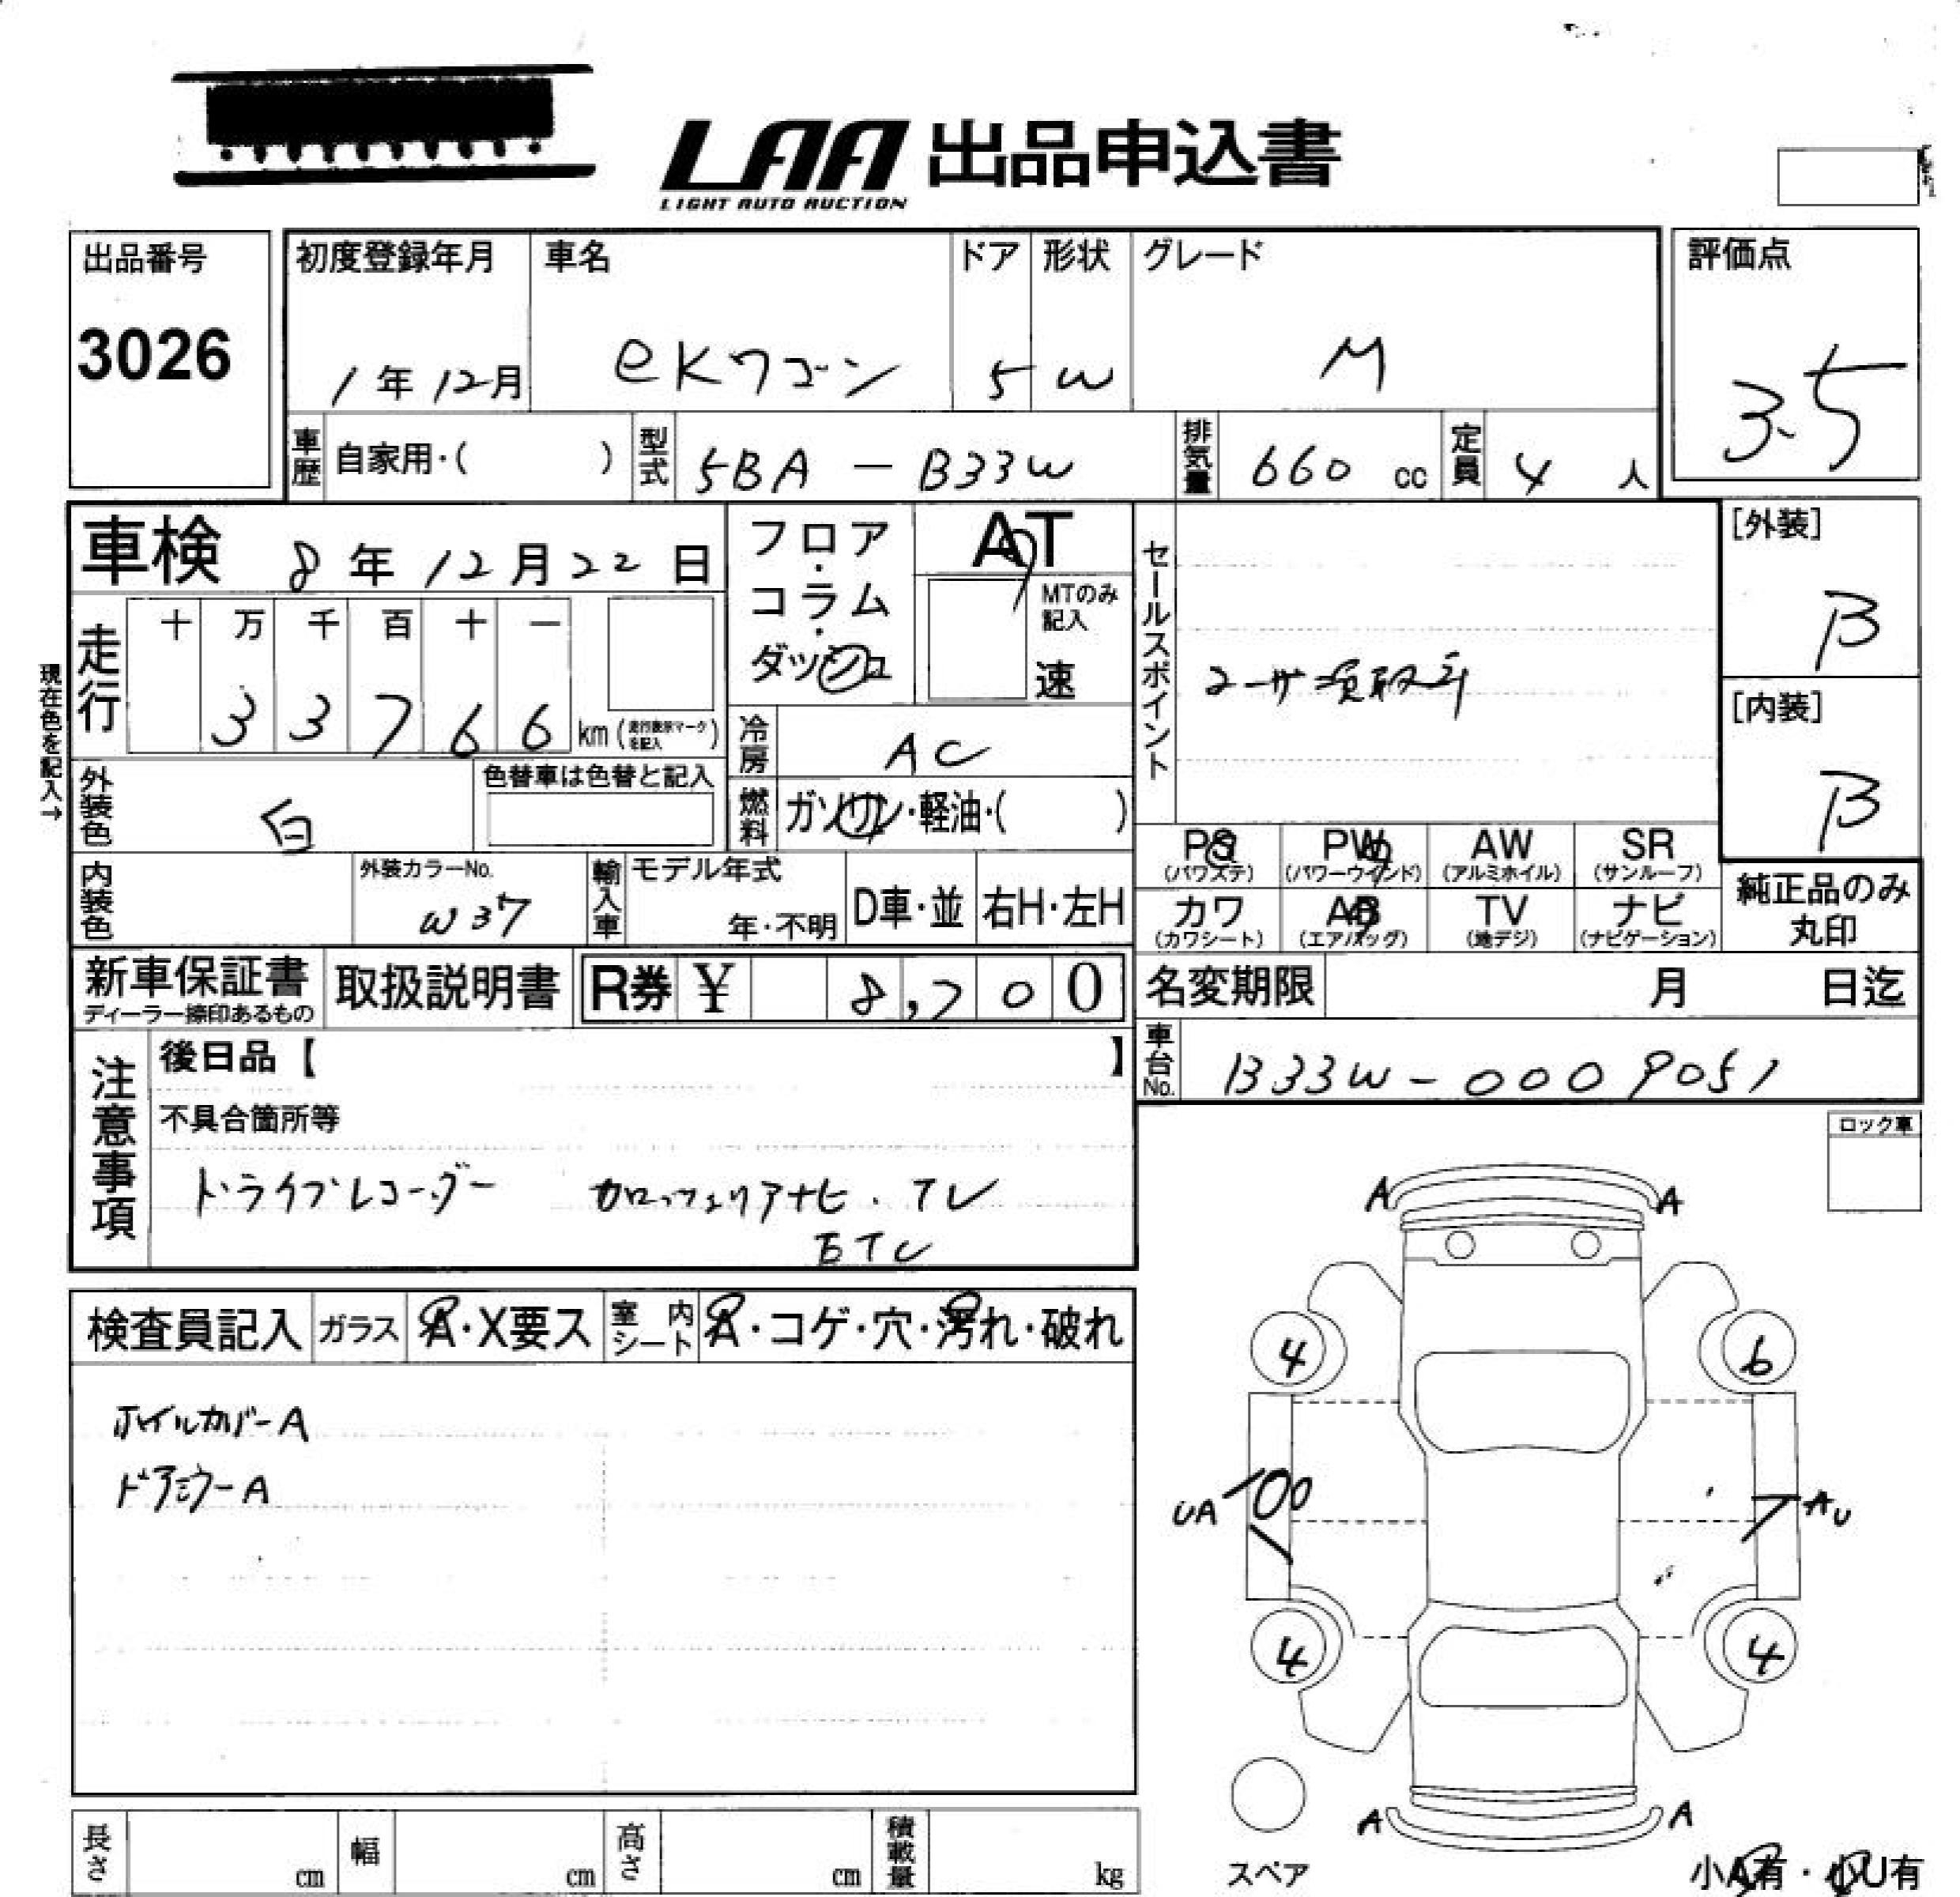 LAA 出品申込書
LIGHT AUTO AUCTION
出品番号
3026
初度登録年月
1年12月
車名
eKワゴン
ドア
5
形状
W
グレード
M
評価点
3.5
車歴
自家用・( )
型式
5BA - B33W
排気量
660 cc
定員
4 人
車検 8年12月22日
フロア・コラム・ダッシュ
AT
MTのみ記入
速
セールスポイント
ユーザー買取車
[外装]
B
[内装]
B
現在色を記入→
走行
十 万 千 百 十 一
3 3 7 6 6 km (走行表示マークを記入)
冷房
AC
外装色
白
色替車は色替と記入
燃料
ガソリン・軽油・( )
PS (パワステ)
PW (パワーウインド)
AW (アルミホイル)
SR (サンルーフ)
内装色
外装カラーNo.
W37
輸入車
モデル年式
年・不明
D車・並
右H・左H
カワ (カワシート)
AB (エアバッグ)
TV (地デジ)
ナビ (ナビゲーション)
純正品のみ丸印
新車保証書
ディーラー捺印あるもの
取扱説明書
R券 ¥ 8,700
名変期限 月 日迄
車台No.
B33W-0009051
注意事項
後日品【 】
不具合箇所等
ドライブレコーダー カロッツェリアナビ・TV
ETC
ロック車
検査員記入
ガラス
A・X要ス
室内シート
A・コゲ・穴・汚れ・破れ
ホイルカバーA
ドアミラーA
A A
4 6
UA
AU
4 4
A A
スペア
小A有・小U有
長さ cm
幅 cm
高さ cm
積載量 kg